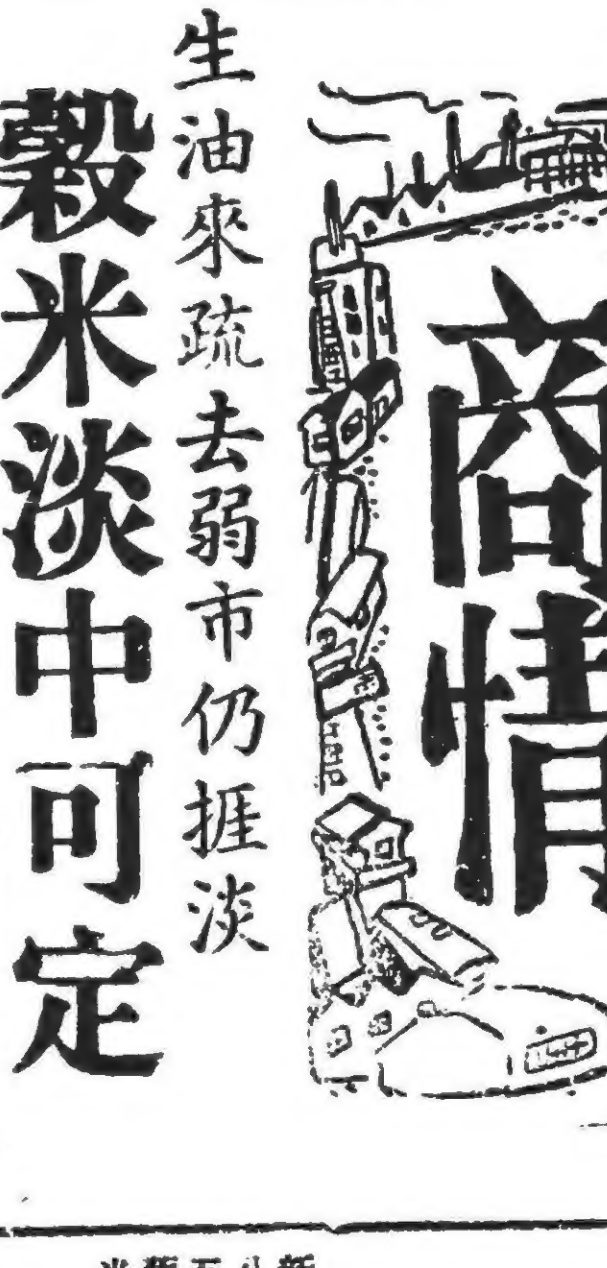 商情
生油來疏去弱市仍捱淡
穀米淡中可定